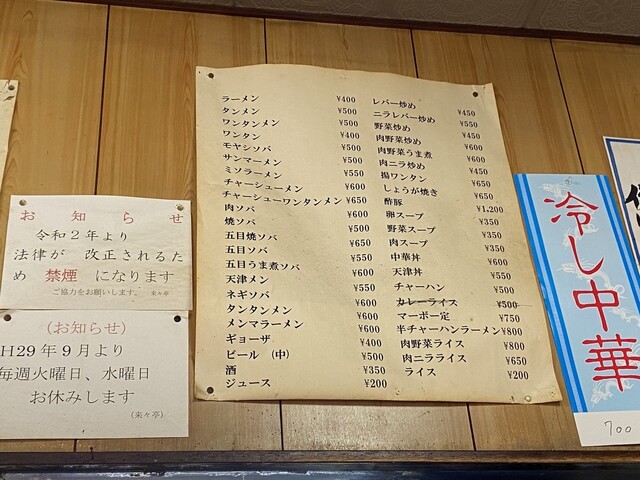 ラーメン ¥400
タンメン ¥500
ワンタンメン ¥500
ワンタン ¥400
モヤシソバ ¥500
サンマーメン ¥500
ミソラーメン ¥550
チャーシューメン ¥600
チャーシューワンタンメン ¥650
肉ソバ ¥600
焼ソバ ¥500
五目焼ソバ ¥650
五目ソバ ¥600
五目うま煮ソバ ¥600
天津メン ¥600
ネギソバ ¥500
タンタンメン ¥600
メンマラーメン ¥600
ギョーザ ¥400
ビール（中） ¥500
酒 ¥350
ジュース ¥200
レバー炒め ¥450
ニラレバー炒め ¥550
野菜炒め ¥450
肉野菜炒め ¥600
肉野菜うま煮 ¥600
肉ニラ炒め ¥450
揚ワンタン ¥650
しょうが焼き ¥650
酢豚 ¥1,200
卵スープ ¥350
野菜スープ ¥350
肉スープ ¥350
中華丼 ¥600
天津丼 ¥550
チャーハン ¥500
カレーライス ¥500
マーボー定 ¥750
半チャーハンラーメン ¥800
肉野菜ライス ¥800
肉ニラライス ¥650
ライス ¥200
お知らせ
令和２年より
法律が 改正されるた
め 禁煙 になります
ご協力をお願いします。 来々亭
(お知らせ)
H29年9月より
毎週火曜日、水曜日
お休みします
(来々亭)
冷し中華
700